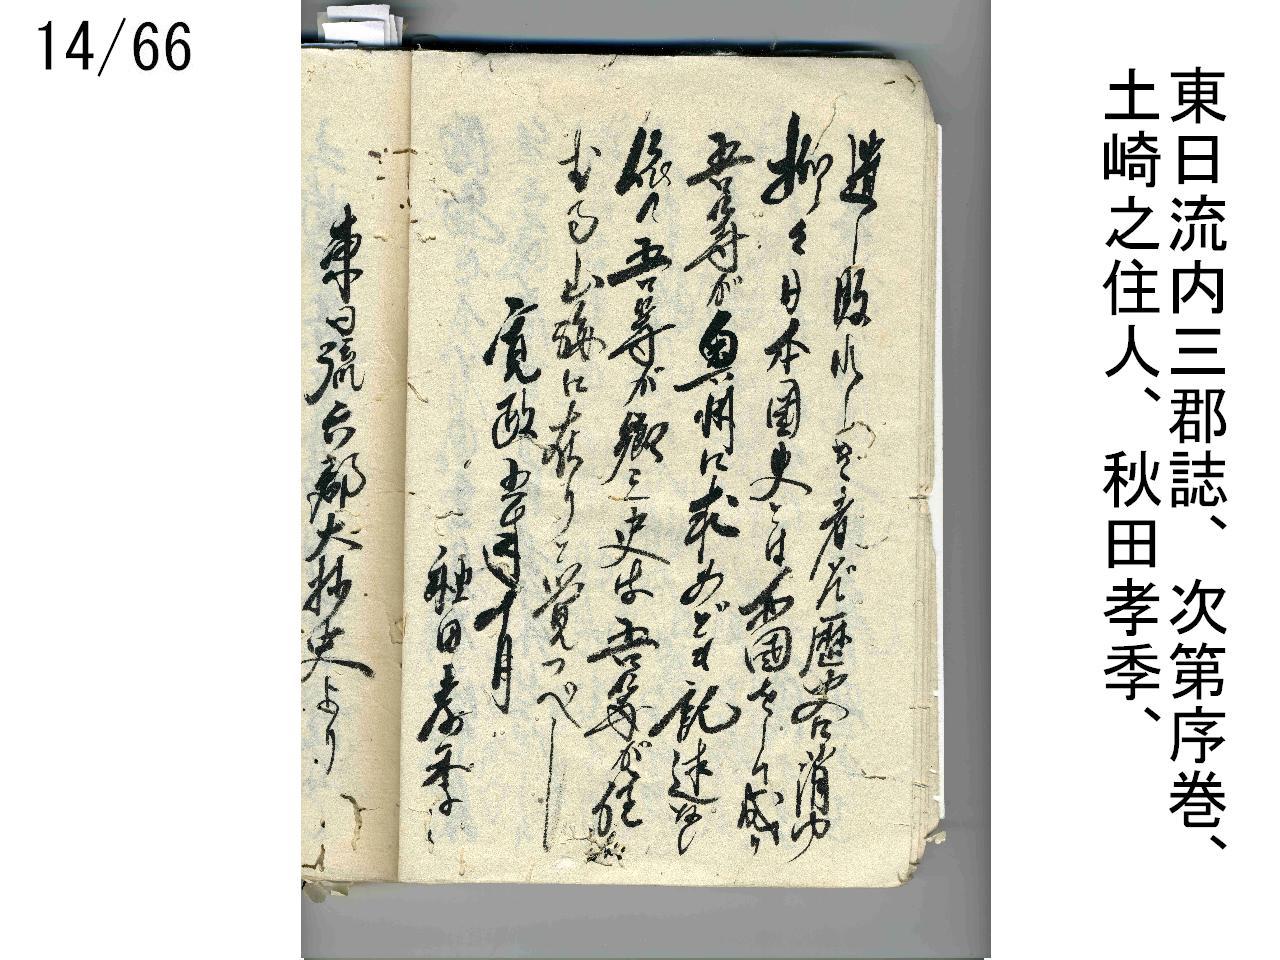 14/66
東日流内三郡誌、次第序巻、
土崎之住人、秋田孝季、
遺し敗れしき者ぞ歴史に消ゆ
抑々日本国史とは和国をして成り
吾等が奥州に求めども記述なし
依て吾等が郷之史は吾等が住
むる山海に在りと覚つべし
寛政五年十月
秋田孝季
東日流六郡大抄史より